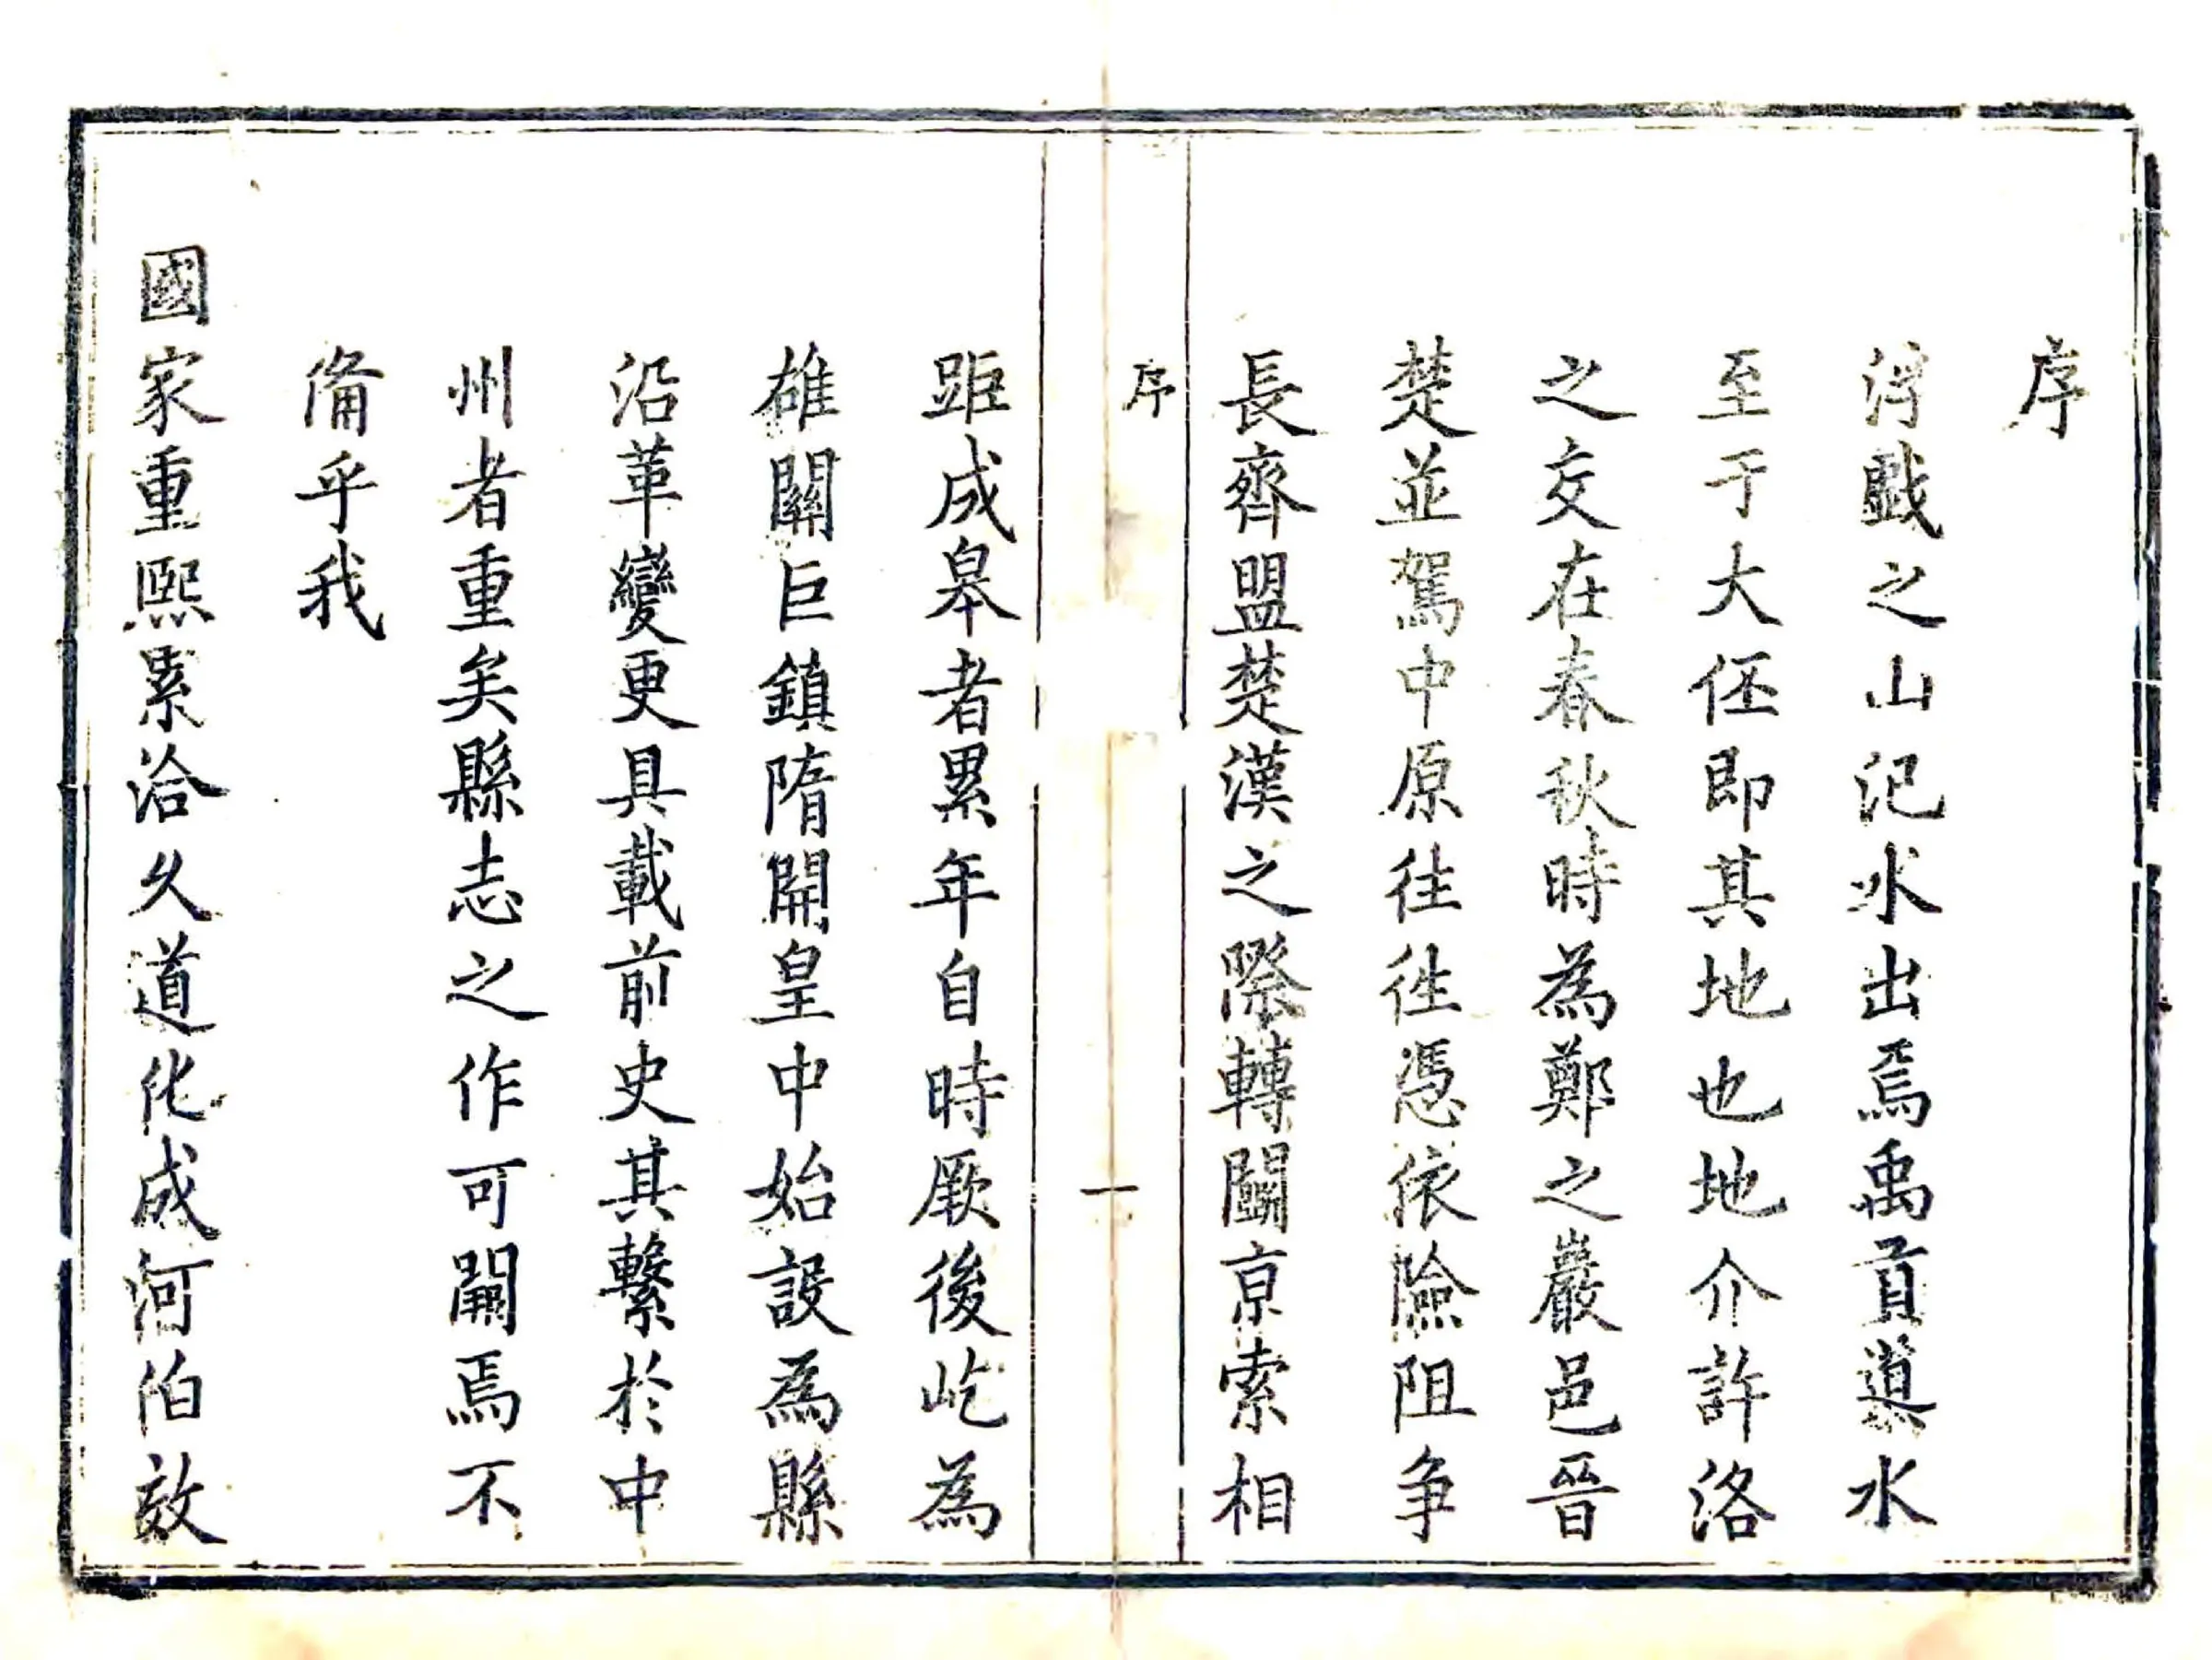 序
浮戱之山汜水出焉禹貢導水
至于大伾即其地也地介許洛
之交在春秋時為鄭之巖邑晉
楚並駕中原往徃憑依險阻争
長齊盟楚漢之際轉鬬京索相
序
一
距成皋者累年自時厥後屹為
雄關巨鎮隋開皇中始設為縣
沿革變更具載前史其繫於中
州者重矣縣志之作可闕焉不
俻乎我
國家重熙累洽久道化成河伯效